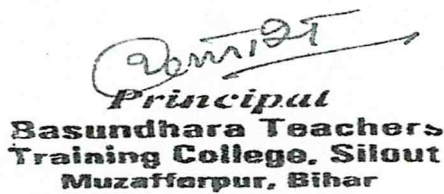 Principal
Basundhara Teachers
Training College, Silout
Muzaffarpur, Bihar